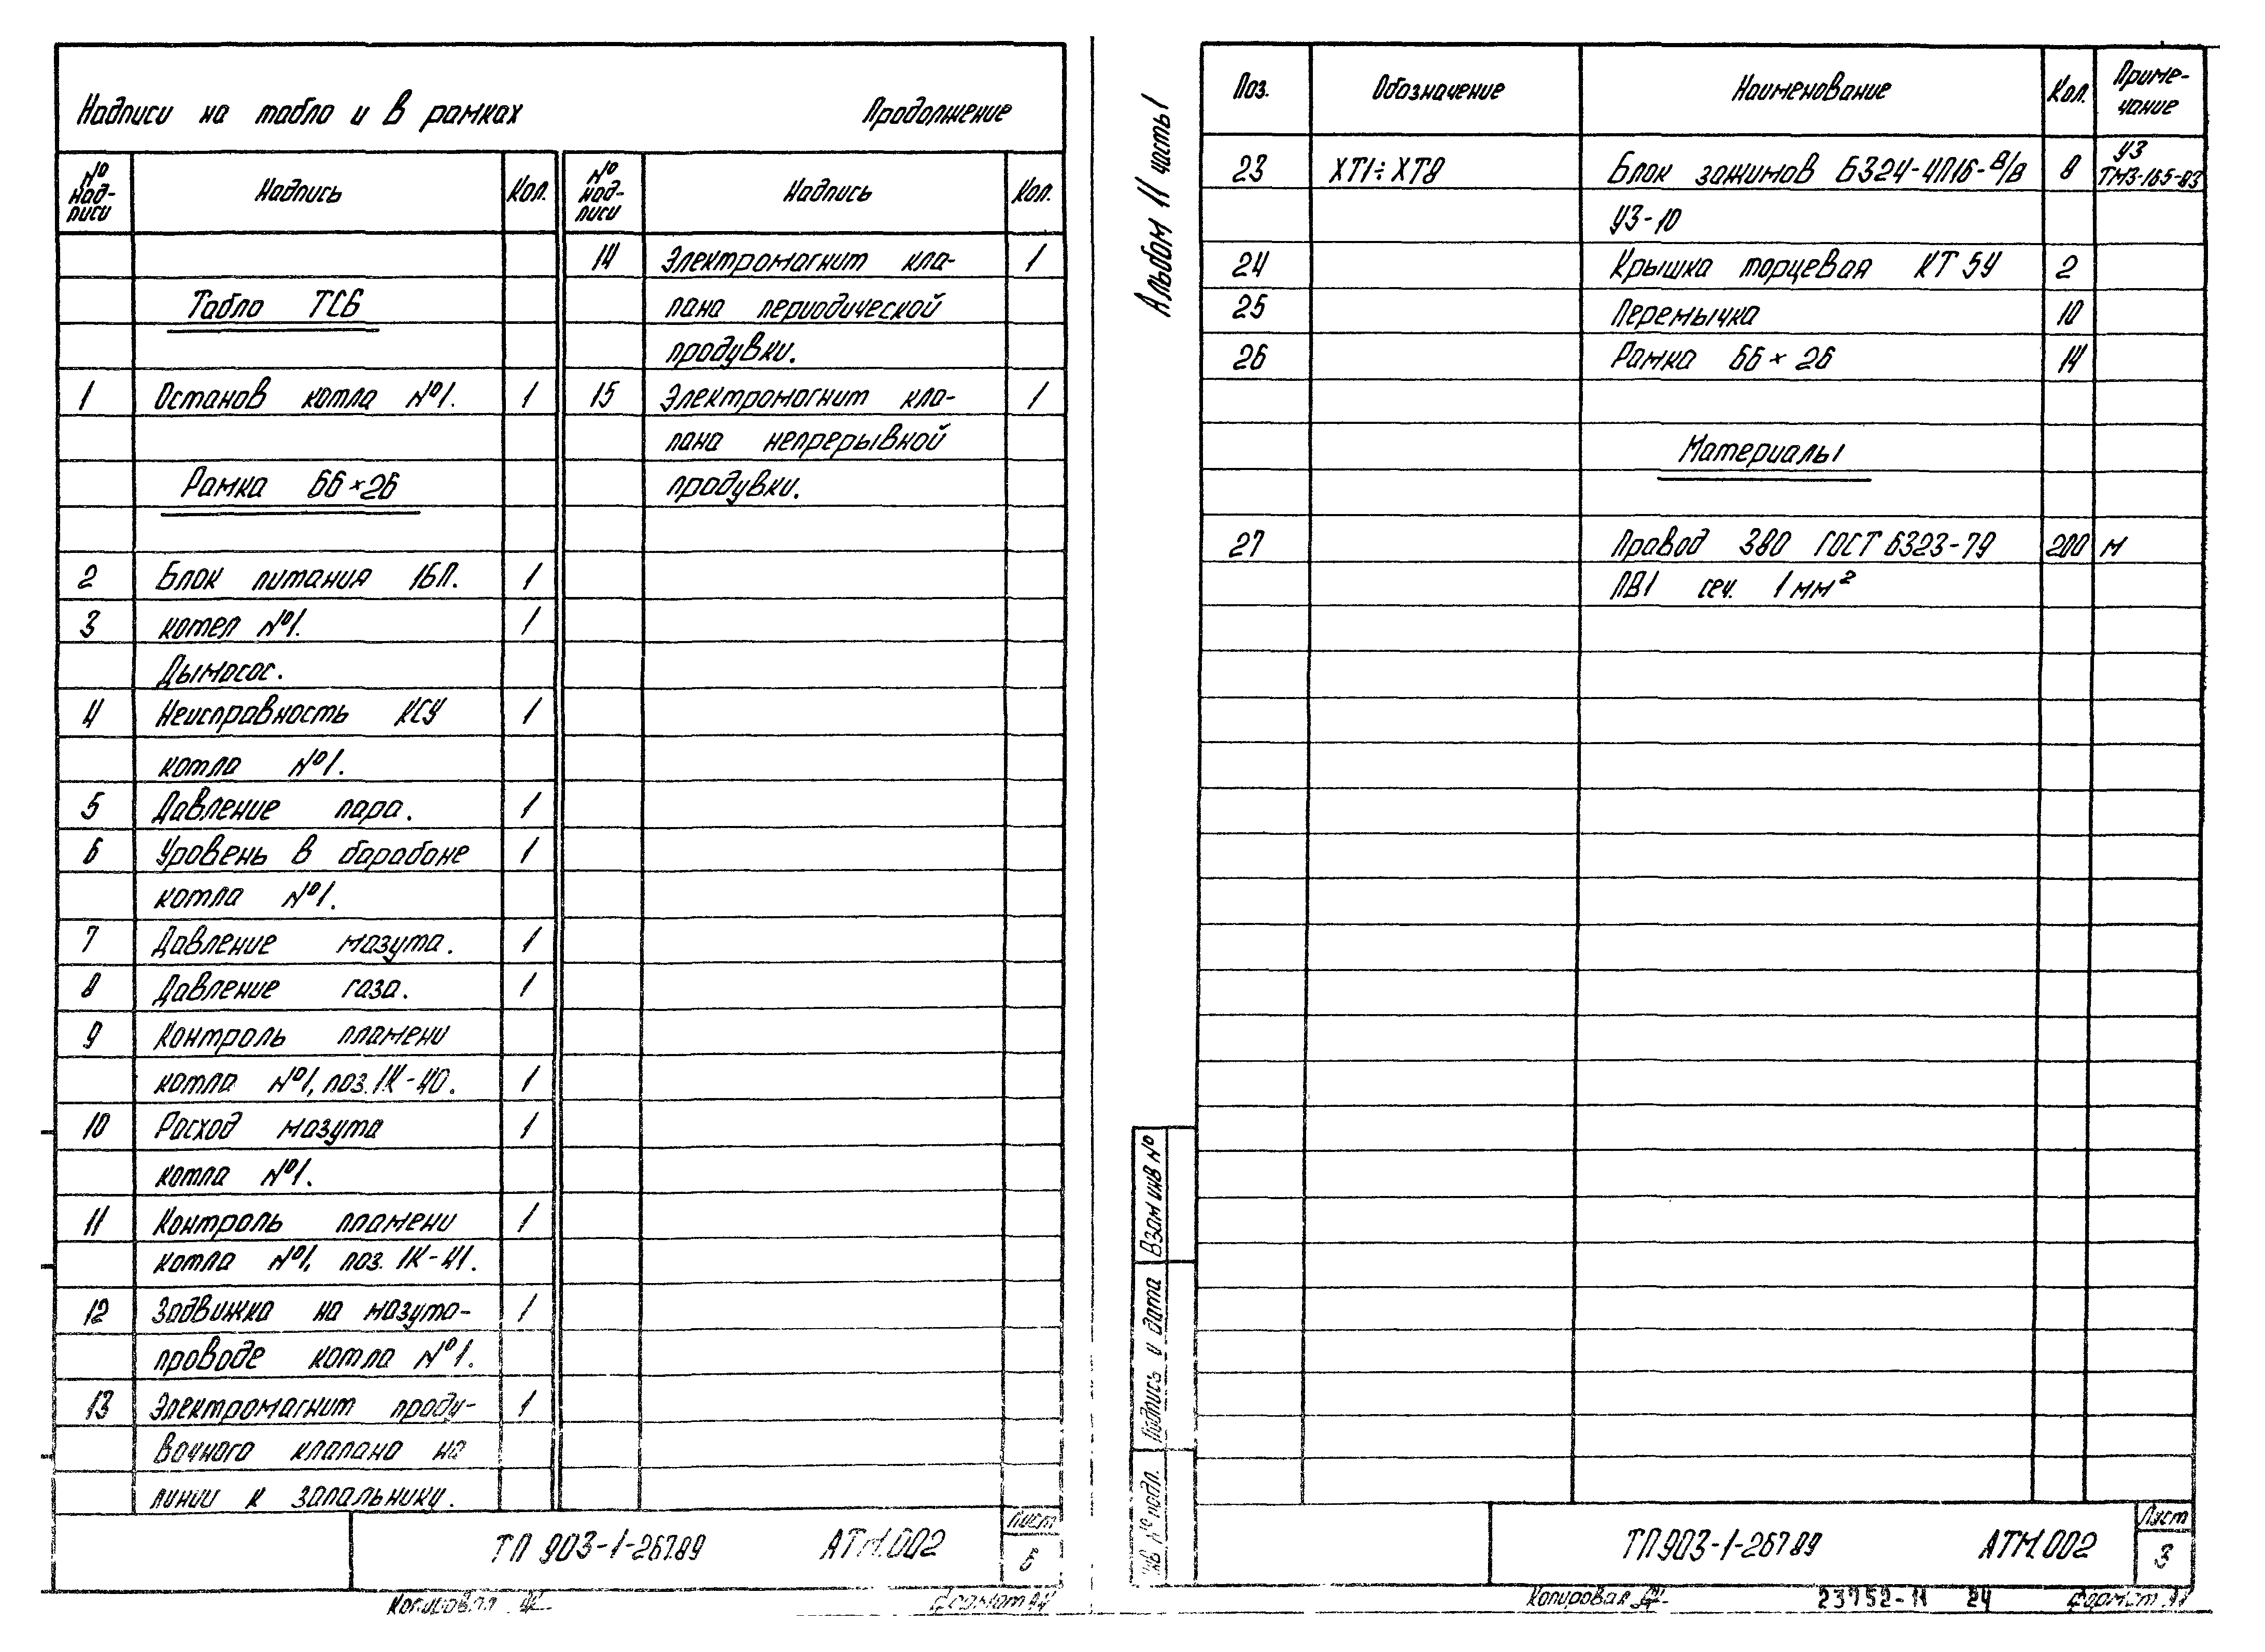 Надписи на табло и в рамках Продолжение
№ над- писи Надпись Кол. № над- писи Надпись Кол.
Табло ТСБ
1 Останов котла №1. 1
Рамка 66×26
2 Блок питания 1БП. 1
3 котел №1. 1
Дымосос.
4 Неисправность КСУ 1
котла №1.
5 Давление пара. 1
6 Уровень в барабане 1
котла №1.
7 Давление мазута. 1
8 Давление газа. 1
9 Контроль пламени
котла №1, поз. 1К-40. 1
10 Расход мазута 1
котла №1.
11 Контроль пламени 1
котла №1, поз. 1К-41.
12 Задвижка на мазуто- 1
проводе котла №1.
13 Электромагнит проду- 1
вочного клапана на
линии к запальнику.
14 Электромагнит кла- 1
пана периодической
продувки.
15 Электромагнит кла- 1
пана непрерывной
продувки.
ТП 903-1-267.89 АТМ.002
Лист
Копировал
Формат А4
Альбом 11 часть 1
Поз. Обозначение Наименование Кол. Приме- чание
23 ХТ1÷ХТ8 Блок зажимов Б324-4П16-В/В 8 У3 ТМ3-165-83
У3-10
24 Крышка торцевая КТ5У 2
25 Перемычка 10
26 Рамка 66×26 14
Материалы
27 Провод 380 ГОСТ 6323-79 200 м
ПВ1 сеч. 1 мм²
Взам инв №
Подпись и дата
Инв № подл.
ТП903-1-267.89 АТМ.002
Лист
3
Копировал
23752-11 24
Формат